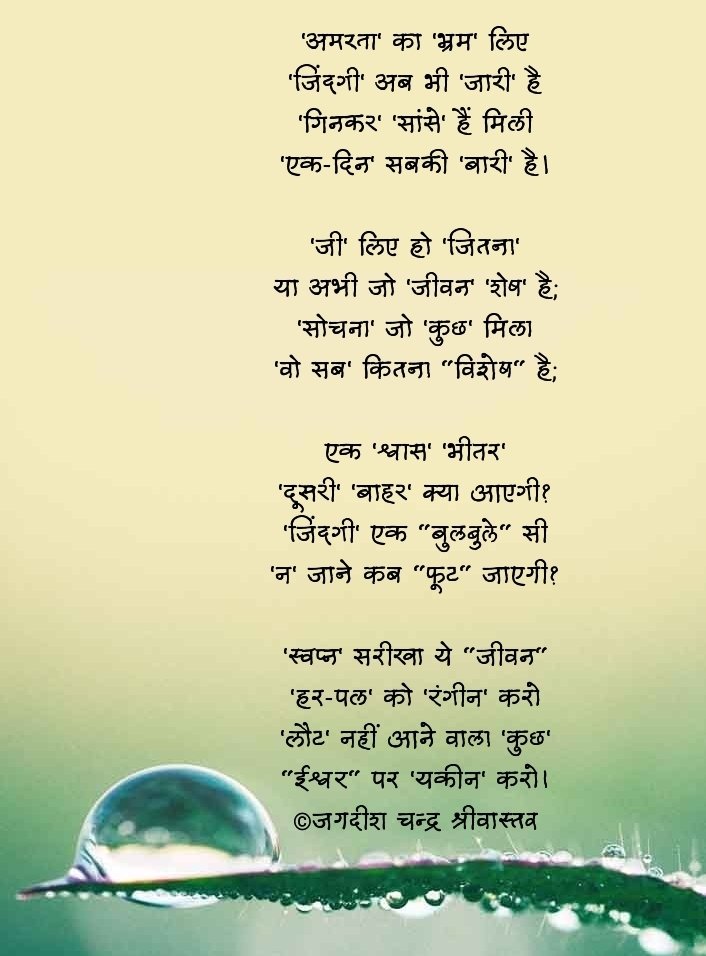 'अमरता' का 'भ्रम' लिए
'जिंदगी' अब भी 'जारी' है
'गिनकर' 'सांसे' हैं मिली
'एक-दिन' सबकी 'बारी' है।
'जी' लिए हो 'जितना'
या अभी जो 'जीवन' 'शेष' है;
'सोचना' जो 'कुछ' मिला
'वो सब' कितना "विशेष" है;
एक 'श्वास' 'भीतर'
'दूसरी' 'बाहर' क्या आएगी?
'जिंदगी' एक "बुलबुले" सी
'न' जाने कब "फूट" जाएगी?
'स्वप्न' सरीखा ये "जीवन"
'हर-पल' को 'रंगीन' करो
'लौट' नहीं आने वाला 'कुछ'
"ईश्वर" पर 'यकीन' करो।
©जगदीश चन्द्र श्रीवास्तव